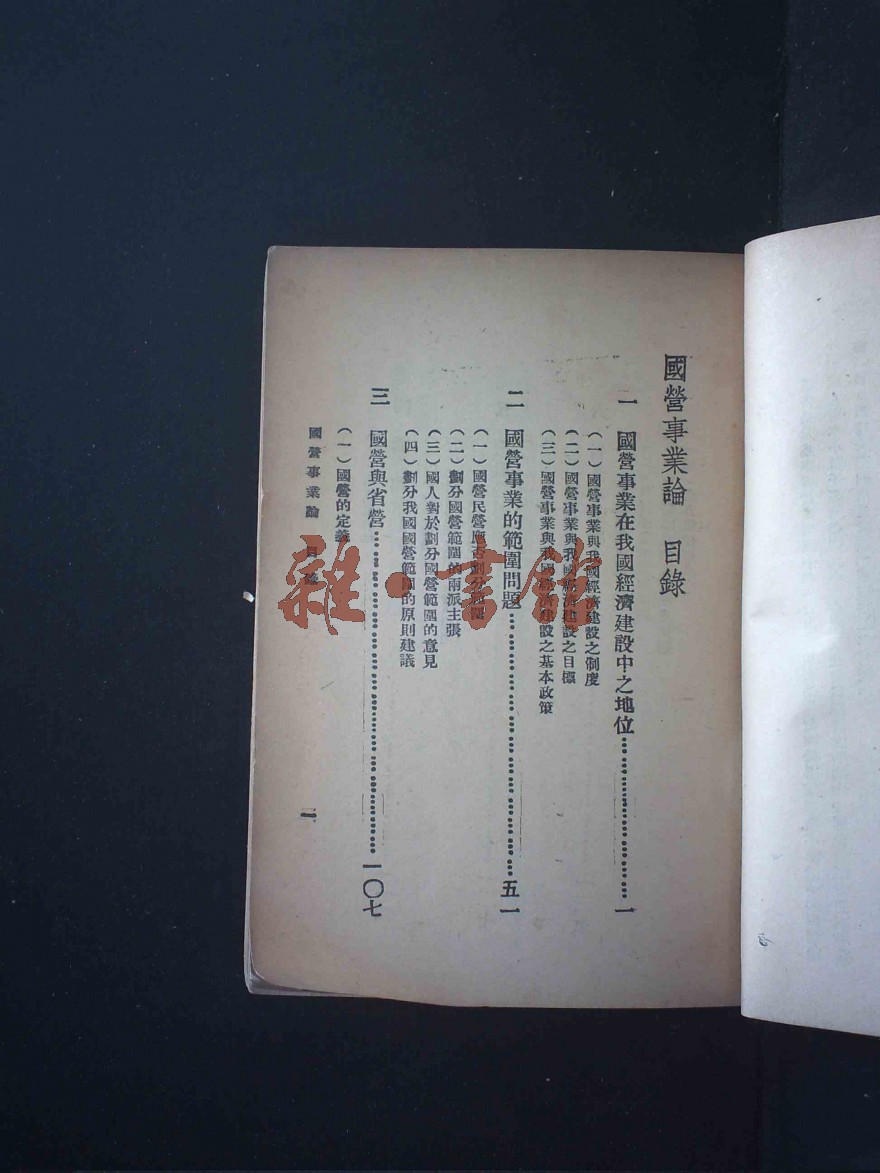 國營事業論 目錄
一 國營事業在我國經濟建設中之地位……………………一
(一)國營事業與我國經濟建設之制度
(二)國營事業與我國經濟建設之目標
(三)國營事業與我國經濟建設之基本政策
二 國營事業的範圍問題……………………五一
(一)國營民營應否劃分範圍
(二)劃分國營範圍的兩派主張
(三)國人對於劃分國營範圍的意見
(四)劃分我國國營範圍的原則建議
三 國營與省營……………………一〇七
(一)國營的定義
國營事業論 目錄
一
雜·書館